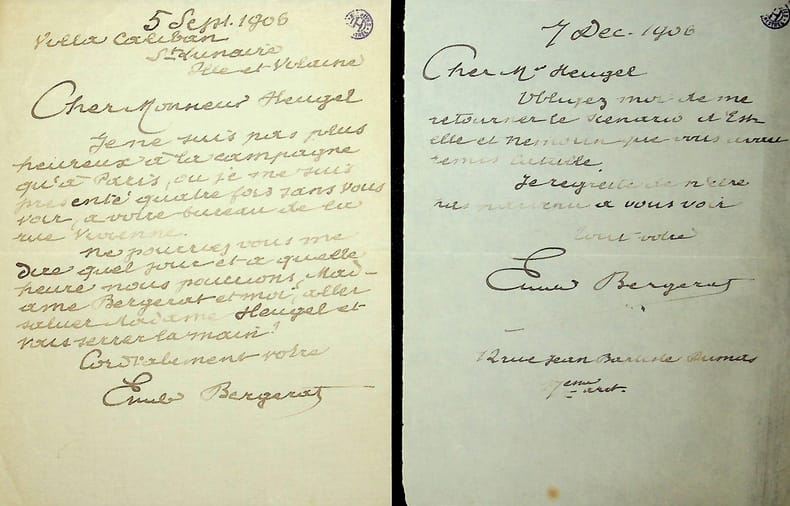 5 Sept. 1906
Villa Caliban
St Lunaire
Ille et Vilaine
Cher Monsieur Heugel
Je ne suis pas plus
heureux à la campagne
qu'à Paris, ou je me suis
présenté quatre fois sans vous
voir, a votre bureau de la
rue Vivienne.
Ne pourriez vous me
dire quel jour et a quelle
heure nous pourrions, Mad-
ame Bergerat et moi, aller
saluer Madame Heugel et
vous serrer la main?
Cordialement votre
Emile Bergerat
7 Dec. 1906
Cher Mr Heugel
Obligez moi de me
retourner le scenario d'Est
elle et Nemorin que vous avait
remis
Je regrette de n'être
pas parvenu a vous voir
tout votre
Emile Bergerat
12 rue Jean Baptiste Dumas
17eme arrt.